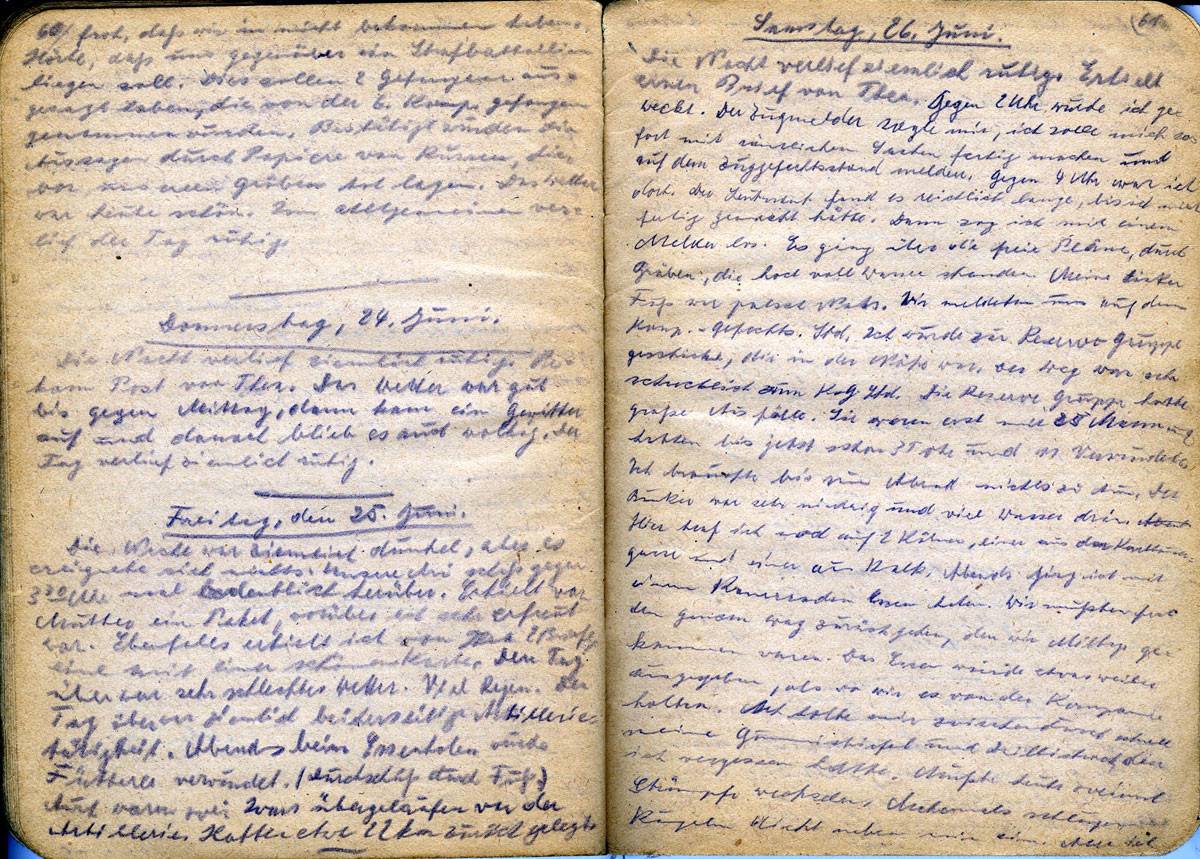 60/ froh, daß wir ihn nicht bekommen haben.
Hörte, daß uns gegenüber ein Strafbattallion
liegen soll. Dies sollen 2 Gefangene aus-
gesagt haben, die von der 6. Komp. gefangen
genommen wurden. Bestätigt wurden die
Aussagen durch Papiere von Russen, die
vor unseren Gräben tot lagen. Das Wetter
war heute schön. Im Allgemeinen ver-
lief der Tag ruhig.
Donnerstag, 24. Juni.
Die Nacht verlief ziemlich ruhig. Be-
kam Post von Thea. Das Wetter war gut
bis gegen Mittag, dann kam ein Gewitter
auf und danach blieb es auch wolkig. Der
Tag verlief ziemlich ruhig.
Freitag, den 25. Juni.
Die Nacht war ziemlich dunkel, aber es
ereignete sich nichts. Unsere Ari schoß gegen
3 30 Uhr mal ordentlich herüber. Erhielt von
Mutter ein Paket, worüber ich sehr erfreut
war. Ebenfalls erhielt ich von Thea 2 Briefe
eine mit einer schönen Karte. Den Tag
über war sehr schlechtes Wetter. Viel Regen. Der
Tag über ziemlich beiderseitige Artillerie-
tätigkeit. Abends beim Essenholen wurde
verwundet. (Durchschuß durch Fuß)
Auch waren zwei Iwans übergelaufen von der
Artillerie. Hatten etwa 22 km zurück gelegt.
61.
Samstag, 26. Juni.
Die Nacht verlief ziemlich ruhig. Erhielt
einen Brief von Thea. Gegen 2 Uhr wurde ich ge-
weckt. Der Zugmelder sagte mir, ich solle mich so-
fort mit sämtlichen Sachen fertig machen und
auf dem Zuggefechtsstand melden. Gegen 4 Uhr war ich
dort. Der Leutnant fand es reichlich lange, bis ich mich
fertig gemacht hätte. Dann zog ich mit einem
Melder los. Es ging über die freie Pläne, durch
Gräben, die hoch voll Wasser standen. Meine
Füße war patsch naß. Wir meldeten uns auf dem
Komp.-Gefechts. Std. Ich wurde zur Reserve Gruppe
geschickt, die in der Nähe war. Der Weg war sehr
zum K.G. Std. Die Reserve Gruppe hatte
große Ausfälle. Sie waren erst mit 25 Mann
hatten bis jetzt schon 3 Tote und 11 Verwundete.
Ich brauchte bis zum Abend nichts zu tun. Der
Bunker war sehr niedrig und viel Wasser drin.
Hier traf ich auch auf 2 Kölner, einer aus der
gasse und einer aus Kalk. Abends ging ich mit
einem Kameraden Essen holen. Wir mußten
den ganzen Weg zurück gehen, den wir Mittags ge-
kommen waren. Das Essen wurde etwas weiter
ausgegeben, als wo wir es von der Kompanie
holten. Ich holte mir zwischendurch schnell
meine Gummistiefel und Drillichrock den
ich vergessen hatte. Mußte heute zweimal
Strümpfe wechseln. Mehrmals schlugen
Kugeln dicht neben mir ein.